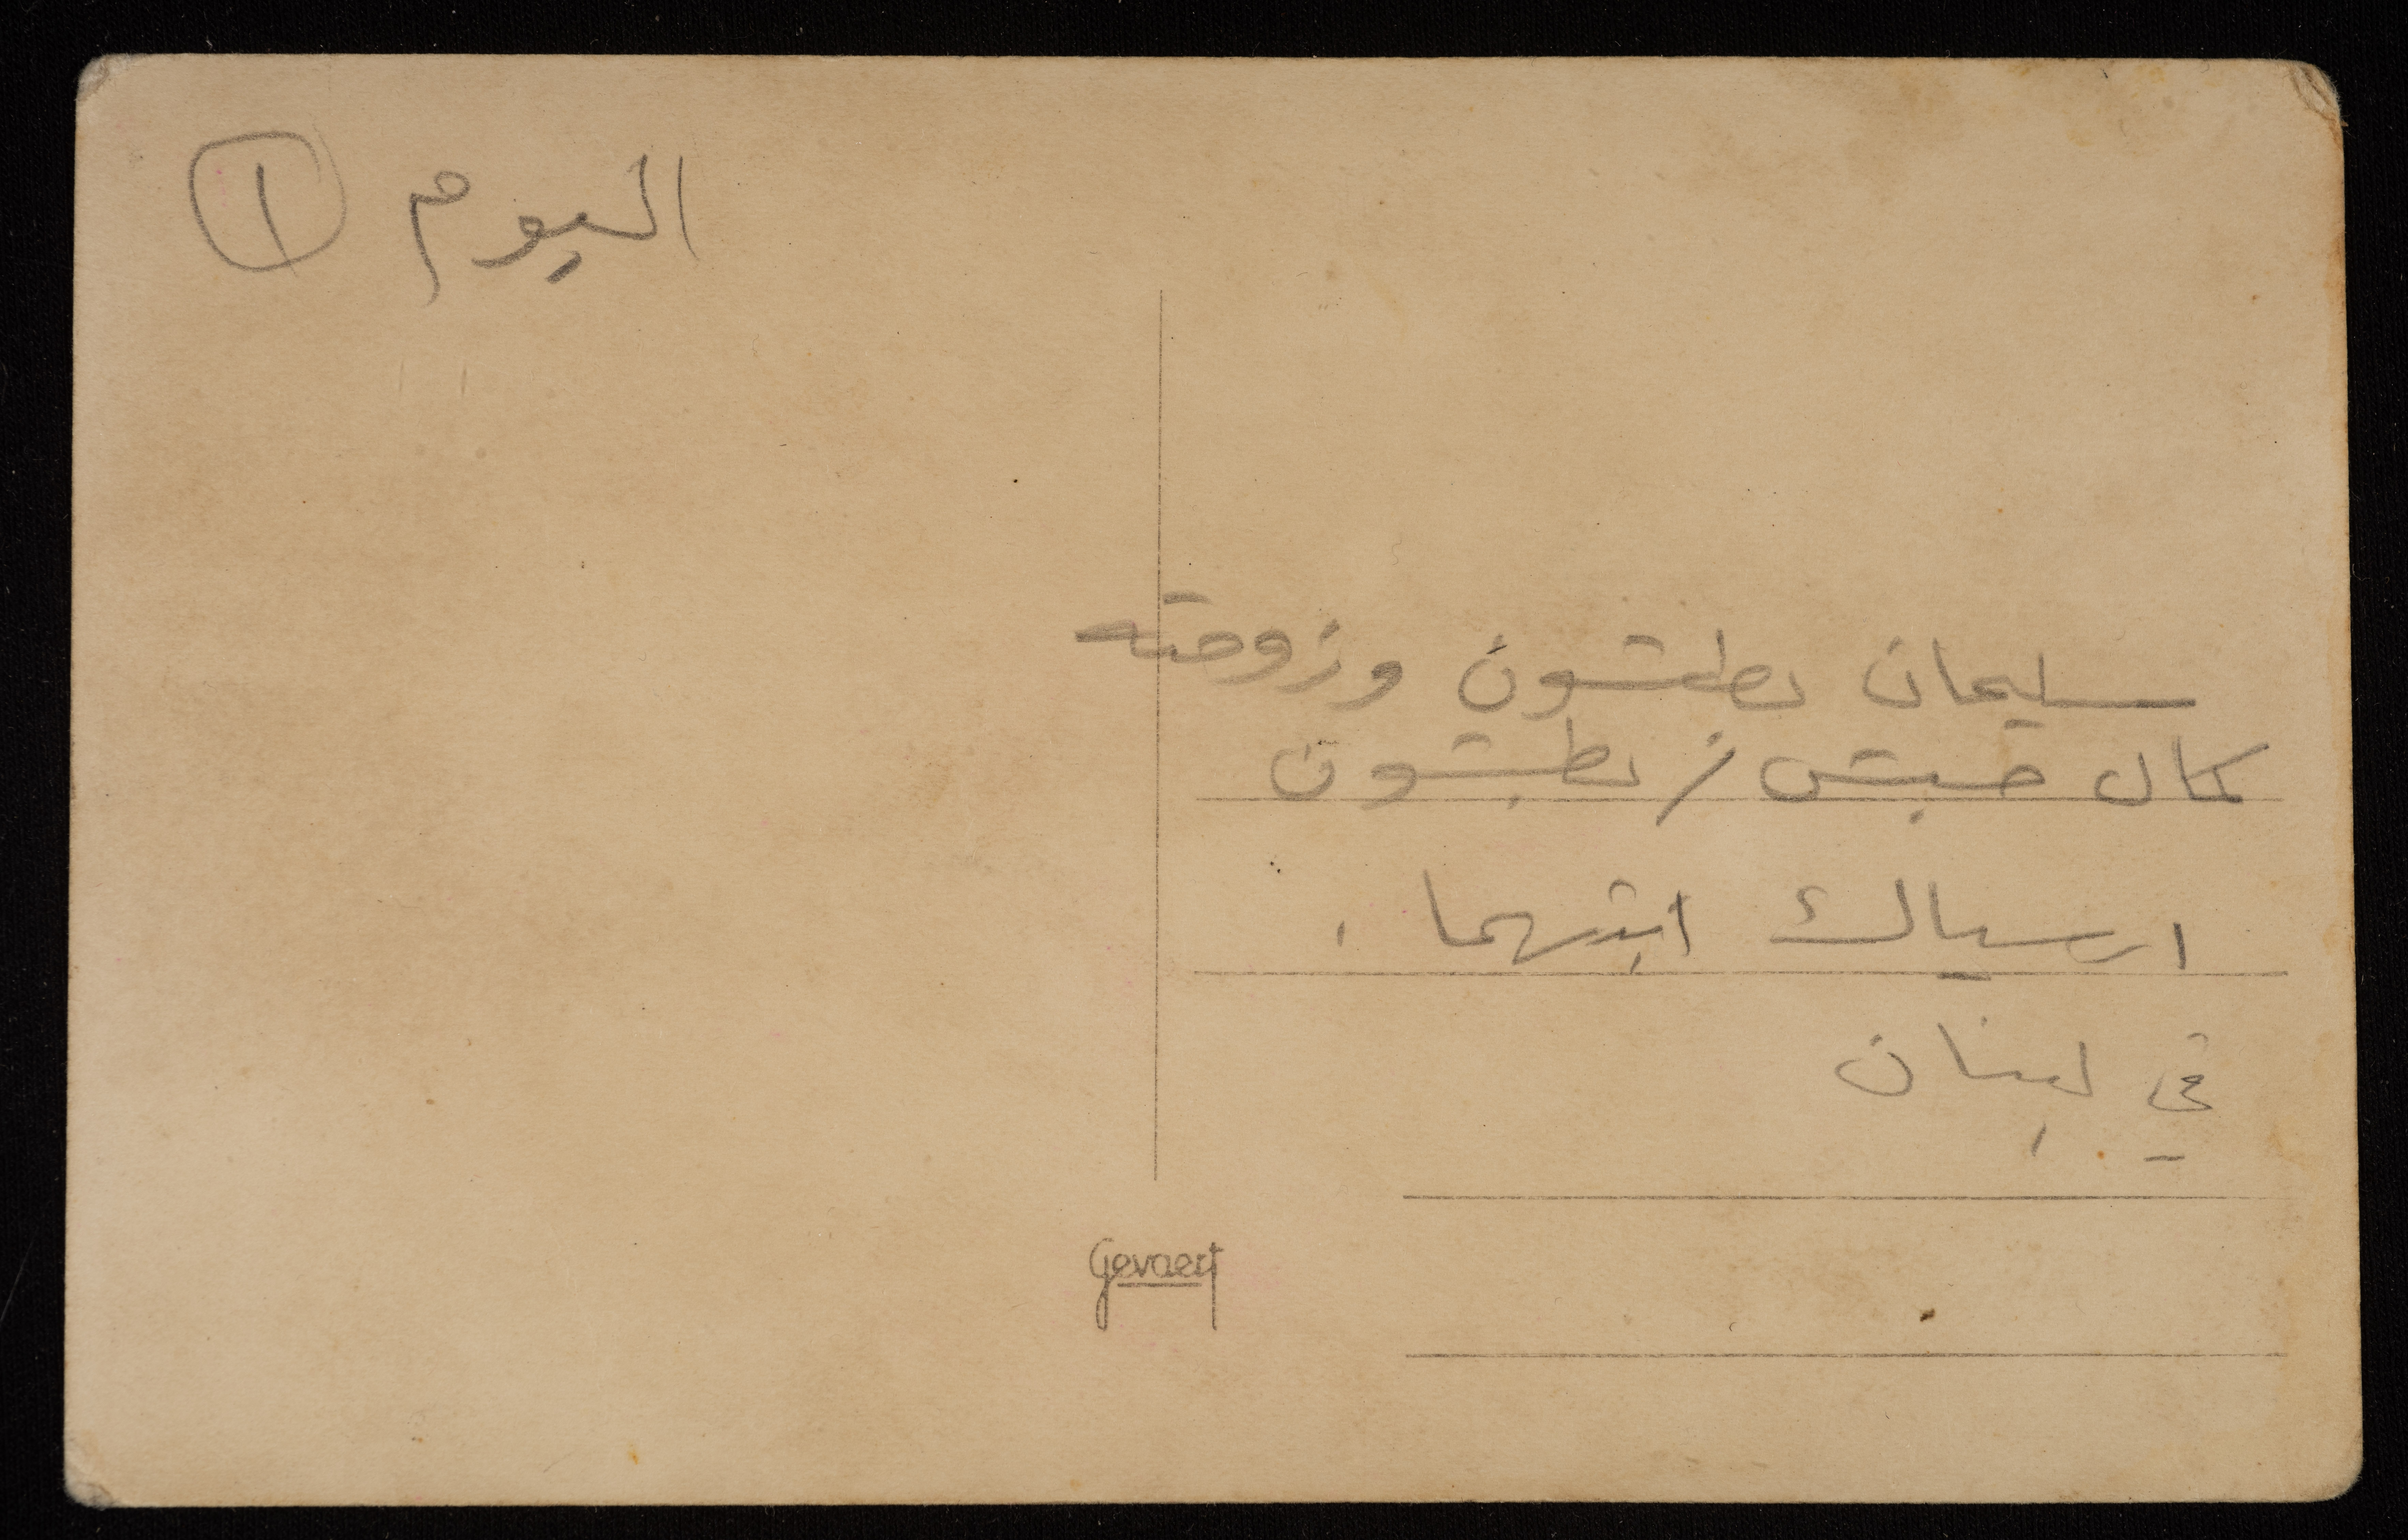 اليوم ١
سليمان بطشون وزوجته
كمال حبش / بطشون
ابنتهما .
في لبنان
Gevaert